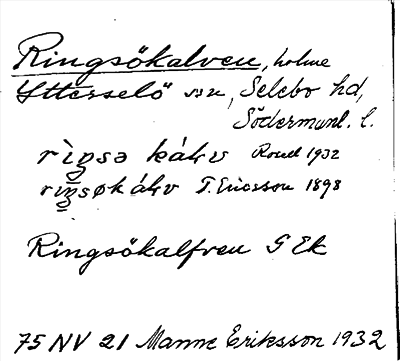 Ringsökalven, holme
Ytterselö sn, Selebo hd,
Södermanl. l.
rìŋsə kálv Roud 1932
riŋsøkálv T. Ericsson 1898
Ringsökalfven G Ek
75 NV 21 Manne Eriksson 1932